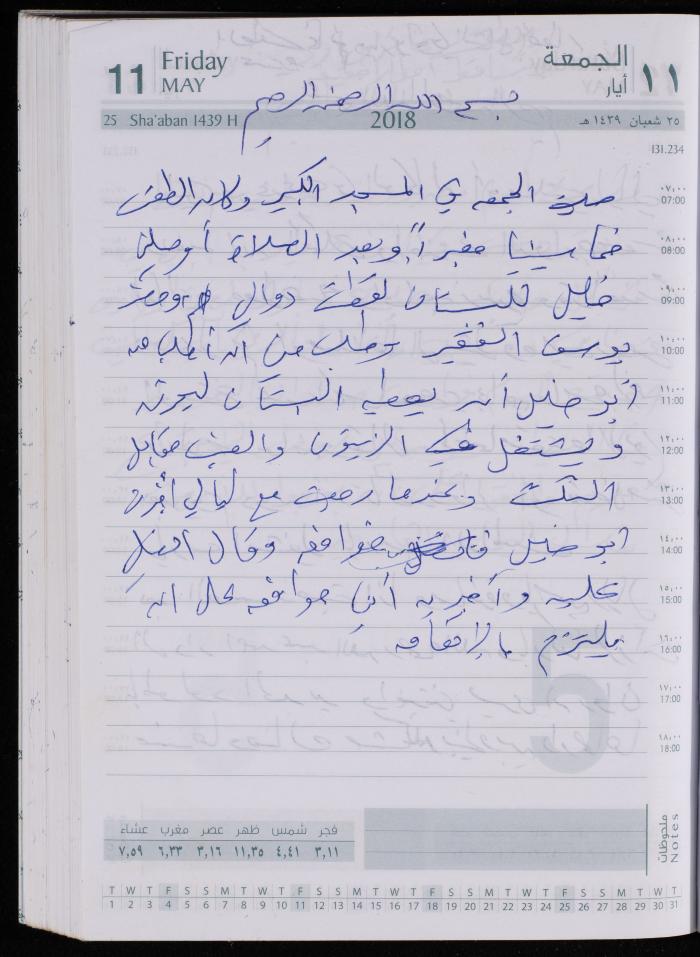 11 Friday MAY الجمعة أيار ١١
بسم الله الرحمن الرحيم
25 Sha'aban 1439 H 2018 ٢٥ شعبان ١٤٣٩ هـ
131.234
صليت الجمعه في المسجد الكبير وكان الطقس ٠٧،٠٠ 07:00
خماسينيا مغبراً وبعد الصلاة أوصلني ٠٨،٠٠ 08:00
خليل للبستان لقطت دوالي وحضر ٠٩،٠٠ 09:00
يوسف الفقير وطلب مني ان أطلب من ١٠،٠٠ 10:00
أبو خليل أن يعطيه البستان ليحرثه ١١،٠٠ 11:00
ويشتغل في الزيتون والعنب مقابل ١٢،٠٠ 12:00
الثلث وعندما رجعت مع ليالي أخبرت ١٣،٠٠ 13:00
أبو خليل فوافق وقال اتصل ١٤،٠٠ 14:00
عليه وأخبره أني موافق على ان ١٥،٠٠ 15:00
يلتزم بالإتفاق ١٦،٠٠ 16:00
١٧،٠٠ 17:00
١٨،٠٠ 18:00
فجر شمس ظهر عصر مغرب عشاء
٣,١١ ٤,٤١ ١١,٣٥ ٣,١٦ ٦,٣٣ ٧,٥٩
ملحوظات Notes
T W T F S S M T W T F S S M T W T F S S M T W T F S S M T W T
1 2 3 4 5 6 7 8 9 10 11 12 13 14 15 16 17 18 19 20 21 22 23 24 25 26 27 28 29 30 31